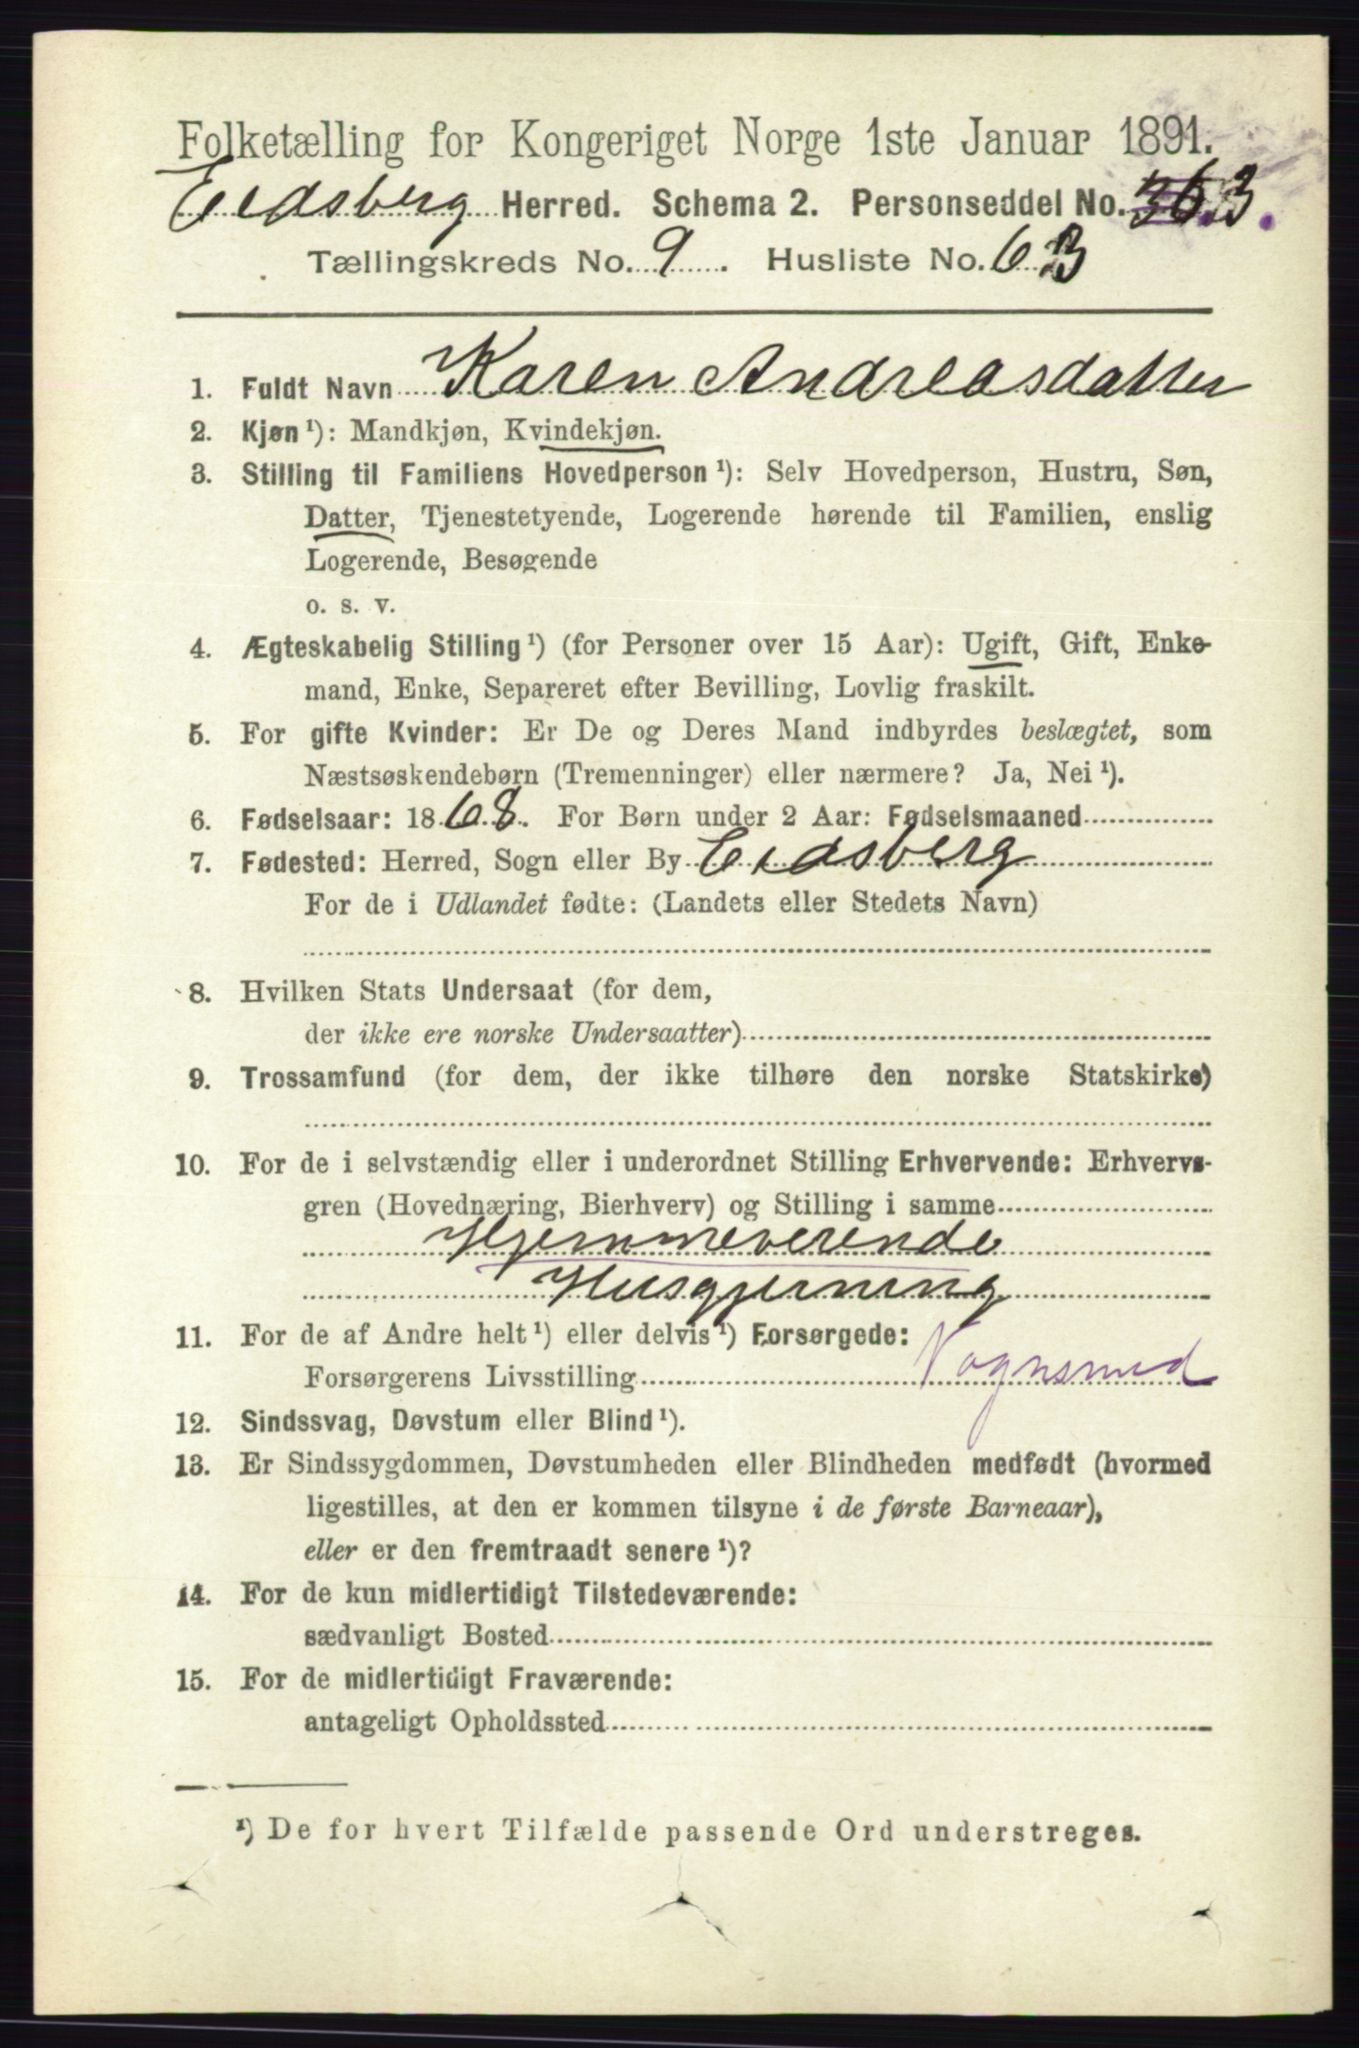 Folketælling for Kongeriget Norge 1ste Januar 1891.
Eidsberg Herred. Schema 2. Personseddel No. 363.
Tællingskreds No. 9. Husliste No. 63
1. Fuldt Navn Karen Andreasdatter
2. Kjøn ¹): Mandkjøn, Kvindekjøn.
3. Stilling til Familiens Hovedperson ¹): Selv Hovedperson, Hustru, Søn,
Datter, Tjenestetyende, Logerende hørende til Familien, enslig
Logerende, Besøgende
o. s. v.
4. Ægteskabelig Stilling ¹) (for Personer over 15 Aar): Ugift, Gift, Enke-
mand, Enke, Separeret efter Bevilling, Lovlig fraskilt.
5. For gifte Kvinder: Er De og Deres Mand indbyrdes beslægtet, som
Næstsøskendebørn (Tremenninger) eller nærmere? Ja, Nei ¹).
6. Fødselsaar: 1868. For Børn under 2 Aar: Fødselsmaaned
7. Fødested: Herred, Sogn eller By Eidsberg
For de i Udlandet fødte: (Landets eller Stedets Navn)
8. Hvilken Stats Undersaat (for dem,
der ikke ere norske Undersaatter)
9. Trossamfund (for dem, der ikke tilhøre den norske Statskirke)
10. For de i selvstændig eller i underordnet Stilling Erhvervende: Erhvervs-
gren (Hovednæring, Bierhverv) og Stilling i samme
Hjemmeverende
Husgjerning
11. For de af Andre helt ¹) eller delvis ¹) Forsørgede:
Forsørgerens Livsstilling Vognsmed
12. Sindssvag, Døvstum eller Blind ¹).
13. Er Sindssygdommen, Døvstumheden eller Blindheden medfødt (hvormed
ligestilles, at den er kommen tilsyne i de første Barneaar),
eller er den fremtraadt senere ¹)?
14. For de kun midlertidigt Tilstedeværende:
sædvanligt Bosted
15. For de midlertidigt Fraværende:
antageligt Opholdssted
¹) De for hvert Tilfælde passende Ord understreges.